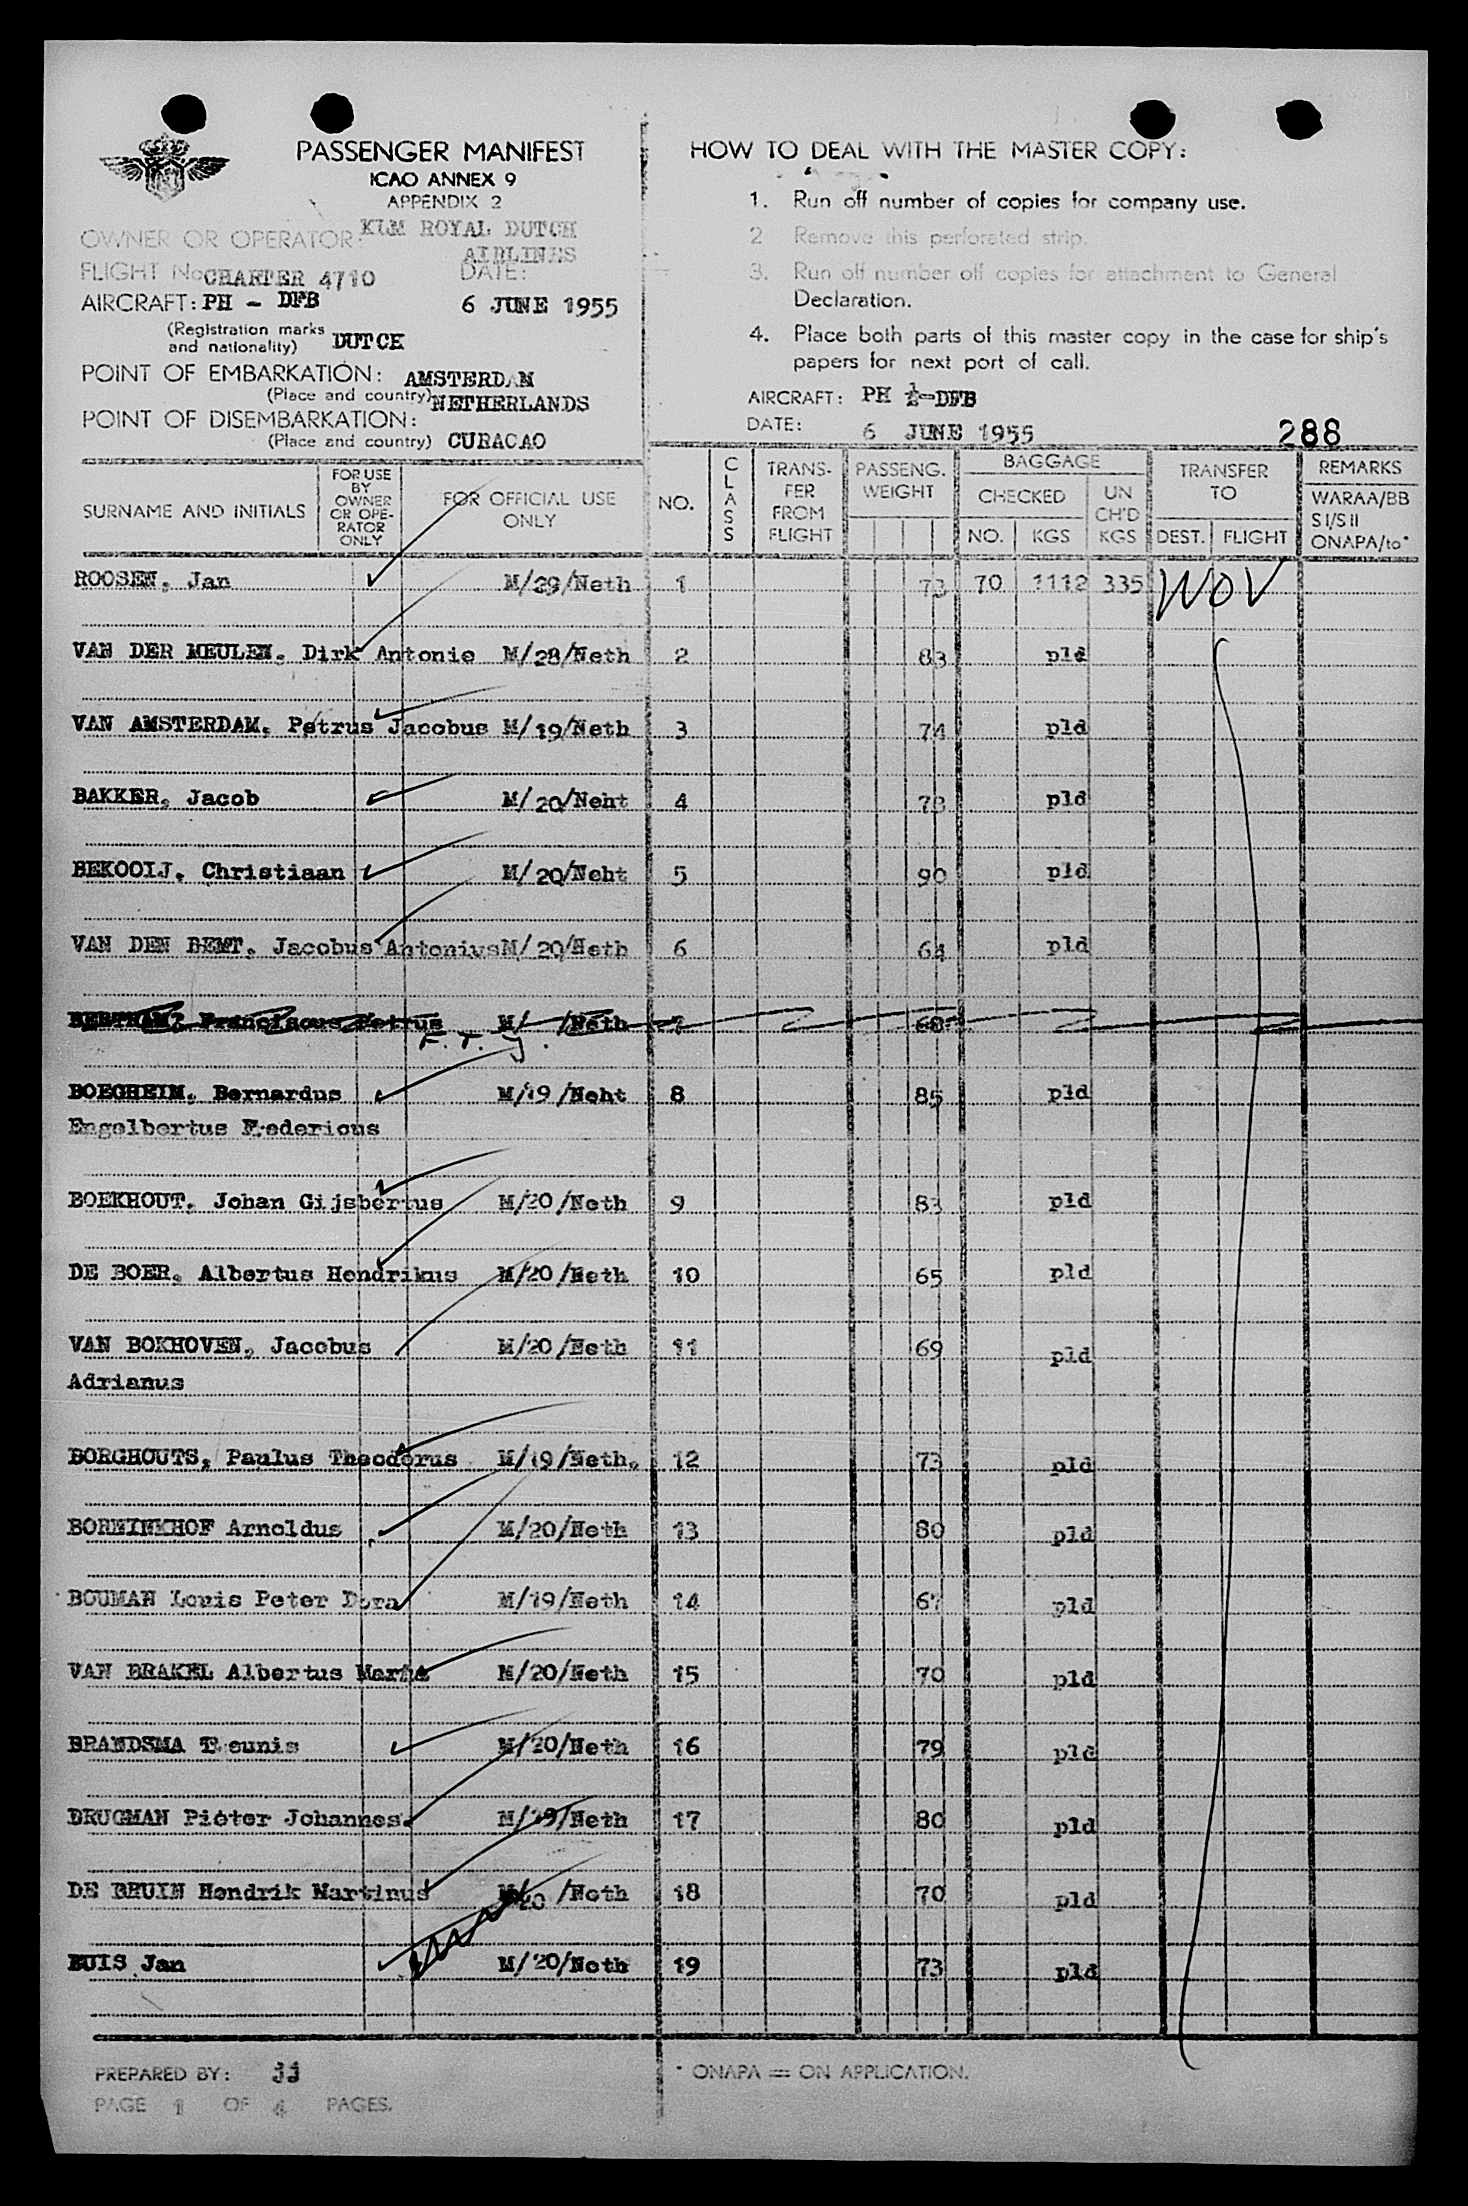 PASSENGER MANIFEST
ICAO ANNEX 9
APPENDIX 2
OWNER OR OPERATOR: KLM ROYAL DUTCH
AIRLINES
FLIGHT No CHARTER 4710 DATE:
AIRCRAFT: PH - DFB 6 JUNE 1955
(Registration marks
and nationality) DUTCH
POINT OF EMBARKATION: AMSTERDAM
(Place and country) NETHERLANDS
POINT OF DISEMBARKATION:
(Place and country) CURACAO
HOW TO DEAL WITH THE MASTER COPY:
1. Run off number of copies for company use.
2 Remove this perforated strip.
3. Run off number off copies for attachment to General
Declaration.
4. Place both parts of this master copy in the case for ship's
papers for next port of call.
AIRCRAFT: PH -DFB
DATE: 6 JUNE 1955
288
SURNAME AND INITIALS
FOR USE
BY
OWNER
OR OPE-
RATOR
ONLY
FOR OFFICIAL USE
ONLY
NO.
CLASS
TRANS-
FER
FROM
FLIGHT
PASSENG.
WEIGHT
BAGGAGE
CHECKED
NO. KGS
UN
CH'D
KGS
TRANSFER
TO
DEST. FLIGHT
REMARKS
WARAA/BB
SI/SII
ONAPA/to*
ROOSEN, Jan M/29/Neth 1 73 70 1112 335 WOV
VAN DER MEULEN, Dirk Antonie M/28/Neth 2 83 pld
VAN AMSTERDAM, Petrus Jacobus M/19/Neth 3 74 pld
BAKKER, Jacob M/20/Neht 4 78 pld
BEKOOIJ, Christiaan M/20/Neht 5 90 pld
VAN DEN BEMT, Jacobus Antonius M/20/Neth 6 64 pld
Franciscus Petrus M/ /Neth 7 68
F. T. J.
BOEGHEIM, Bernardus M/19/Neht 8 85 pld
Engelbertus Fredericus
BOEKHOUT, Johan Gijsbertus M/20/Neth 9 83 pld
DE BOER, Albertus Hendrikus M/20/Neth 10 65 pld
VAN BOKHOVEN, Jacobus M/20/Neth 11 69 pld
Adrianus
BORGHOUTS, Paulus Theodorus M/19/Neth. 12 73 pld
BORNINKHOF Arnoldus M/20/Neth 13 80 pld
BOUMAN Louis Peter Dora M/19/Neth 14 67 pld
VAN BRAKEL Albertus Marie M/20/Neth 15 70 pld
BRANDSMA Teunis M/20/Neth 16 79 pld
BRUGMAN Pieter Johannes M/19/Neth 17 80 pld
DE BRUIN Hendrik Martinus M/20 /Neth 18 70 pld
BUIS Jan M/20/Neth 19 73 pld
PREPARED BY: jj
PAGE 1 OF 4 PAGES.
* ONAPA = ON APPLICATION.